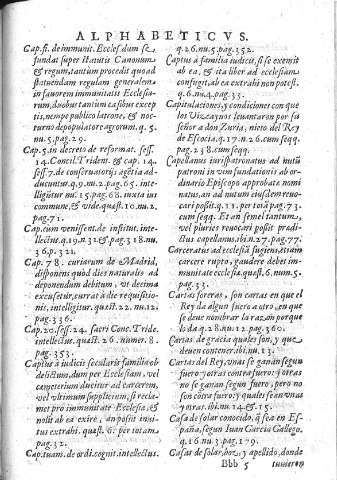 ALPHABETICVS.
Cap. fi. de immunit. Eccles. dum se
fundat super statutis Canonum
& regum, tantùm procedit quo ad
statuendam regulam generalem
in favorem immunitatis Ecclesia-
rum, duobus tantum casibus excep
tis, nempe publico latrone, & noc-
turno depopulatore agrorum. q. 5.
nu. 5. pag. 29.
Cap. 5. in decreto de reformat. sess.
14. Concil. Trident. & cap. 14.
sess. 7. de conservatorijs; agetia ad-
ducuntur. q. 9. nu. 2. pag. 65. intel-
ligūtur nu. 15. pag. 68. iuxta ius
commune, & vide. quæst. 10. nu. 2.
pag. 71.
Cap. cum venissent. de institut. inte-
llectus. q. 19. n. 31. & pag. 318. nu.
36. p. 321.
Cap. 78. curiarum de Madrid,
disponens quòd dies naturalis ad
deponendum debitum, vt decima
excusetur, currat à die requisitio-
nis, intelligitur. quæst. 22. nu. 12.
pag. 336.
Cap. 20. sess. 24. sacri Conc. Tride.
intellectus. quæst 26. numer. 8.
pag. 353.
Captus à iudicijs secularis familia ob
delictum, dum per Ecclesiam, vel
cœmeterium ducitur ad carcerem,
vel vltimum supplicium, si recla-
met pro immunitate Ecclesiæ, &
nolit ab ea exire, an possit invi-
tus extrahi. quæst 6. per totam pag.
32.
Cap. tuam. de ord. cognit. intellectus.
q. 26. nu. 5. pag. 352.
Captus à familia iudicis, si se exemit
ab ea, & ita liber ad ecclesiam
confugit, ab ea extrahi non potest.
q. 6. nu. 4. pag. 33.
Capitulaciones, y condiciones con que
los Vizcaynos levantaron por su
señor a don Zuria, nieto del Rey
de Escocia. q. 17. n. 26. cum seqq.
pag. 238. cum seqq.
Capellanus iurispatronatus ad nutū
patroni in vem fundationis ab or-
dinario Episcopo approbatæ nomi
natus, an ad nutum eiusdem revo-
cari possit. q. 11. per totā pag. 73.
cum seqq. Et an semel tantum,
vel pluries revocari possit prædi-
ctus capellanus, ibi. n. 27. pag. 77.
Carceratus ad ecclesiā fugiens, etiam
carcere rupto, gaudere debet im-
munitate ecclesiæ. quæst. 6. num. 5.
pag. 33.
Cartas foreras, son cartas en que el
Rey da algun fuero a otro, en que
se deve nombrar la razon porque
lo da. q. 28. nu. 12. pag. 360.
Cartas de gracia quales son, y que
deuen contener. ibi. nu. 13.
Cartas del Rey, vnas se ganan segun
fuero y otras contra fuero: y otras
no se ganan segun fuero, pero no
son contra fuero: y quales sean vnas
y otras. ibi. nu. 14. & 15.
Casa de solar conocido, q̃ sea en Es-
paña, segun Iuan Garcia Gallego.
q. 16. nu. 3. pag. 179.
Casas de solar, boz, y apellido, donde
Bbb 5 tuvieron